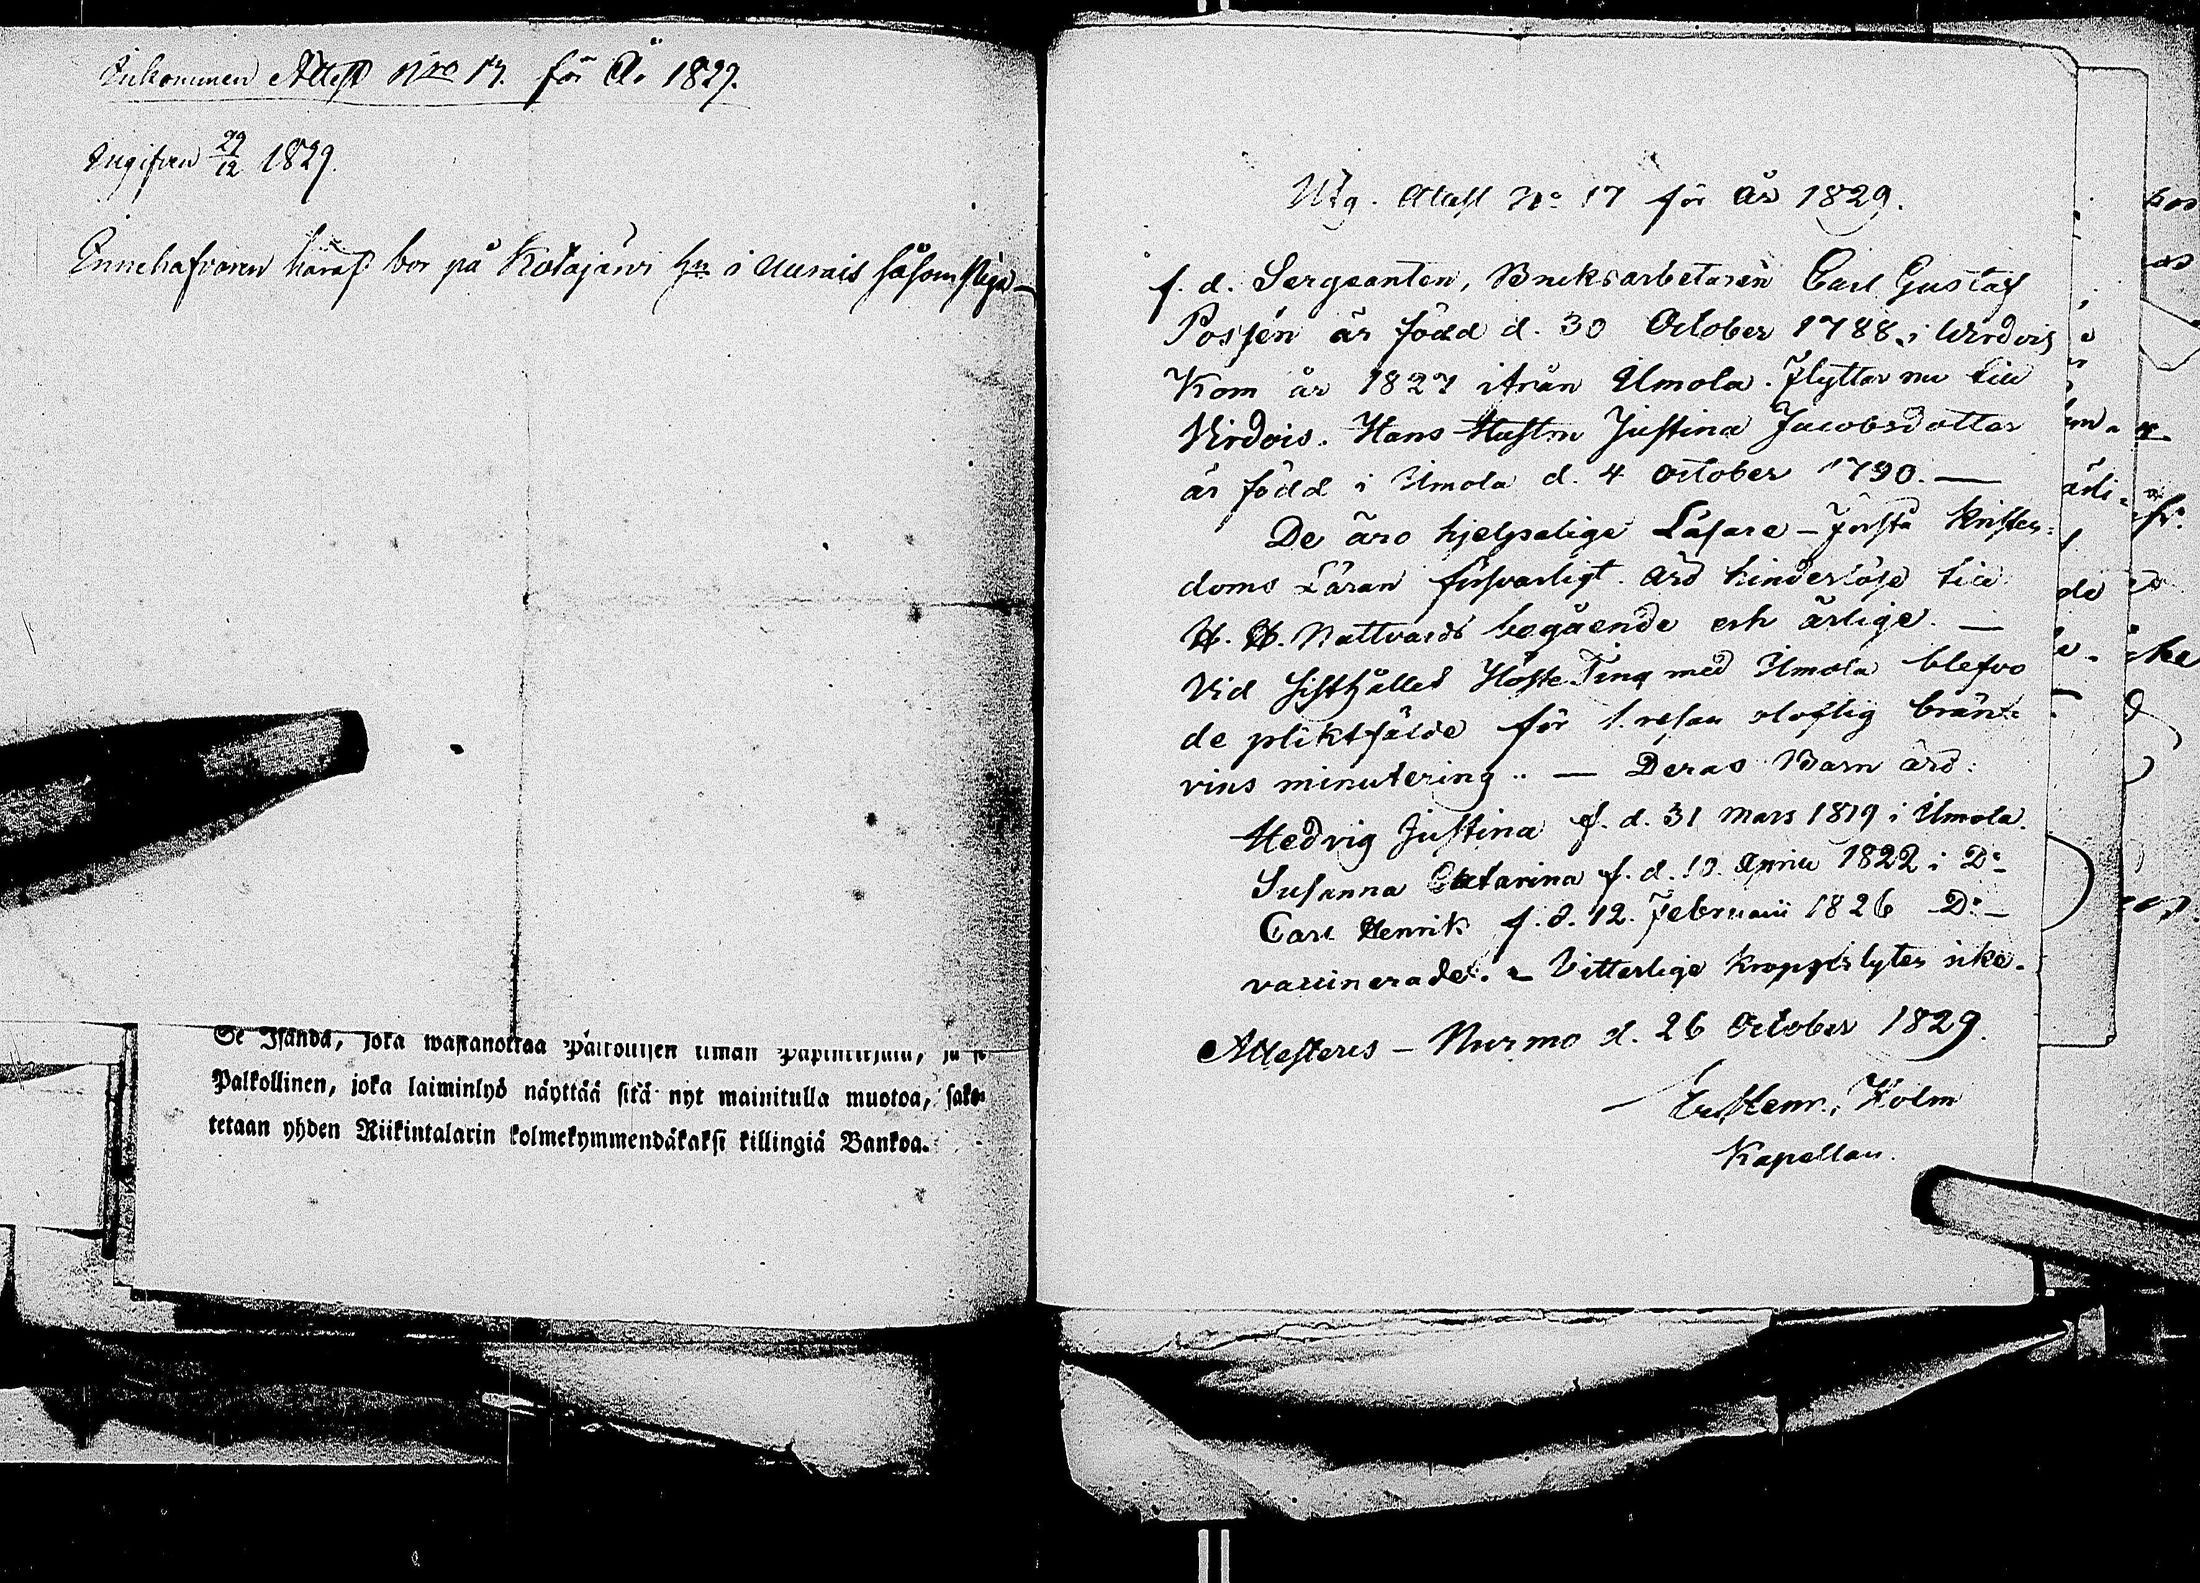 Inkommen Attest Nro 17. för År 1829.
Ingifven 29/12 1829.
Innehafvaren häraf bor på Kotajärvi i såsom Piga
Se Isändä, joka wastanottaa Palkollisen ilman Papinkirjaa, ja se
Palkollinen, joka laiminlyö näyttää sitä nyt mainitulla muotoa, sako-
tetaan yhden Riikintalarin kolmekymmendäkaksi killingiä Bankoa.
Utg. Attest No 17 för år 1829.
f. d. Sergeanten, Bruksarbetaren Carl Gustaf
Possén är född d. 30 October 1788 i Wirdois
Kom år 1827 ifrån Ilmola. Flyttar nu till
Virdois. Hans Hustru Justina Jacobsdotter
är född i Ilmola d. 4 October 1790. —
De äro hjelpelige Läsare – förstå Kristen-
doms Läran försvarligt. äro hinderlöse till
H. H. Nattvards begående och ärlige. —
Vid sisthållet Höste Ting med Ilmola blefvo
de pliktfälde för 1. resan oloflig brän-
vins minutering. — Deras Barn äro:
Hedvig Justina f. d. 31 Mars 1819 i Ilmola.
Susanna Catarina f. d. 13. April 1822 i Do
Carl Henrik f. d. 12. Februarii 1826 Do –
vaccinerade. – Vitterlige kroppslyten icke.
Attesteres – Nurmo d. 26 October 1829.
Er. Henr. Holm
Kapellan.